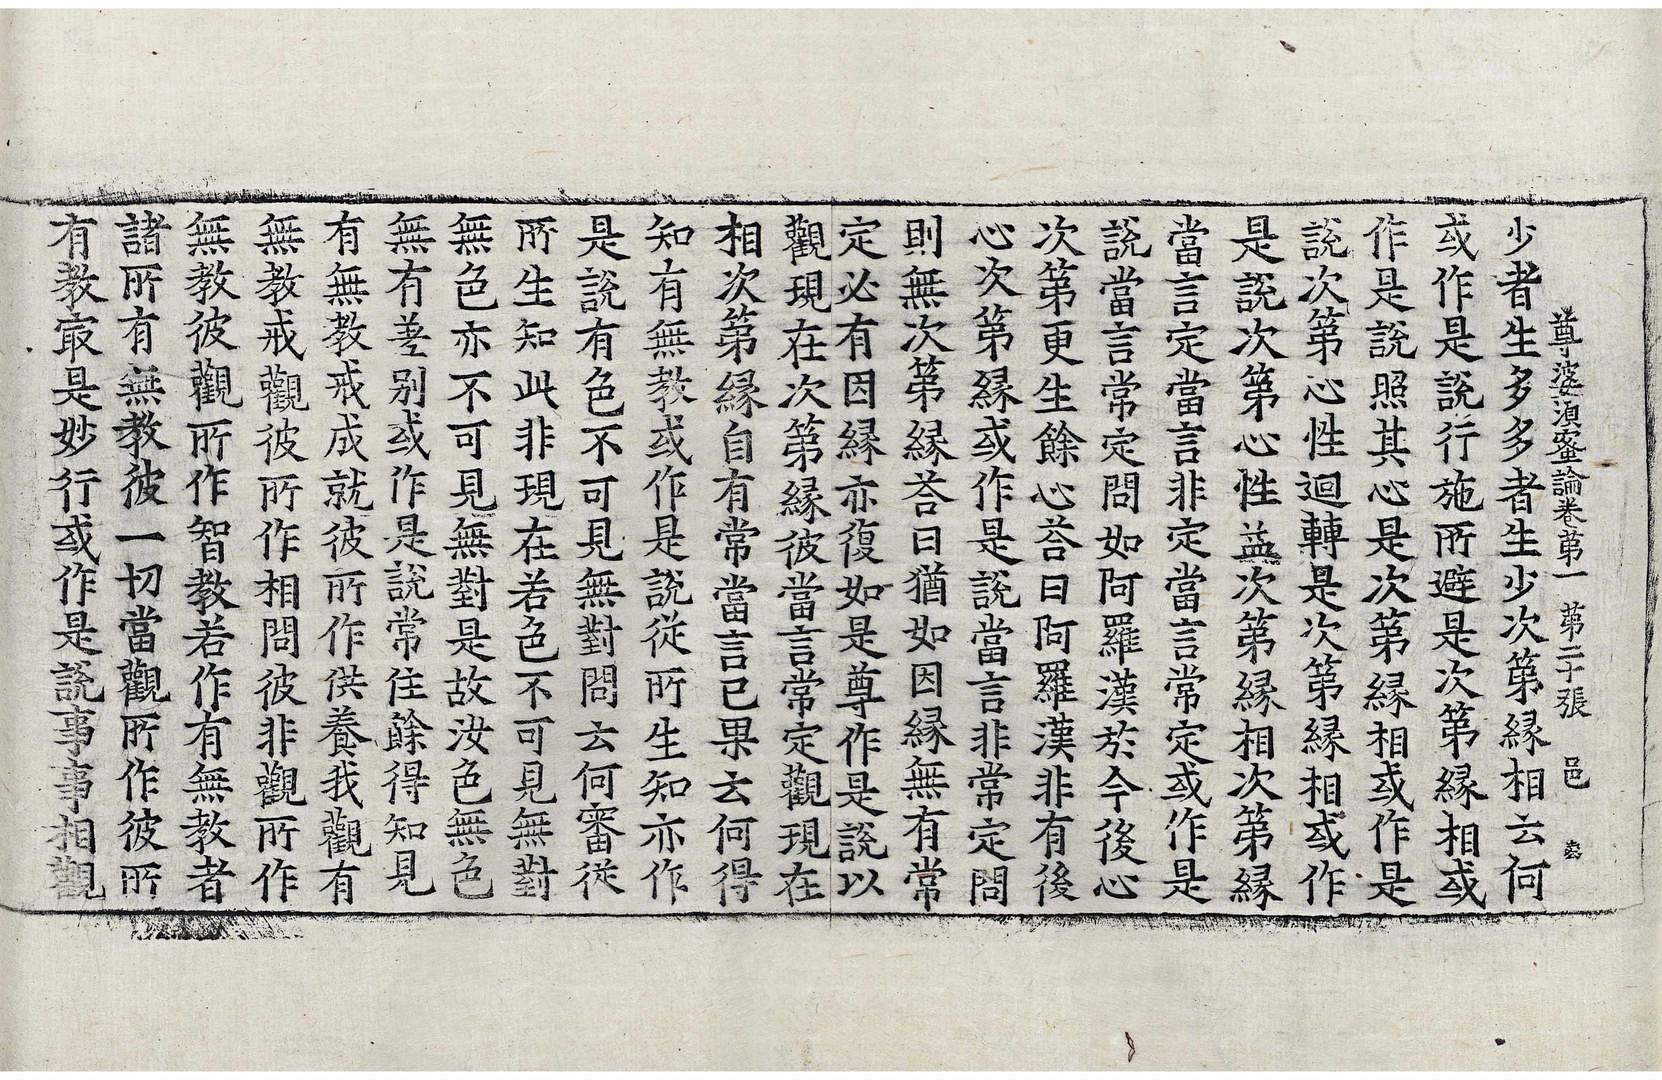 尊婆湏蜜論卷第一 第二十張 邑
少者生多多者生少次第緣相云何
或作是說行施所避是次第緣相或
作是說照其心是次第緣相或作是
說次第心性迴轉是次第緣相或作
是說次第心性益次第緣相次第緣
當言定當言非定當言常定或作是
說當言常定問如阿羅漢於今後心
次第更生餘心荅曰阿羅漢非有後
心次第緣或作是說當言非常定問
則無次第緣荅曰猶如因緣無有常
定必有因緣亦復如是尊作是說以
觀現在次第緣彼當言常定觀現在
相次第緣自有常當言已果云何得
知有無教或作是說從所生知亦作
是說有色不可見無對問云何審從
所生知此非現在若色不可見無對
無色亦不可見無對是故汝色無色
無有差別或作是說常住餘得知見
有無教戒成就彼所作供養我觀有
無教戒觀彼所作相問彼非觀所作
無教彼觀所作智教若作有無教者
諸所有無教彼一切當觀所作彼所
有教寂是妙行或作是說事事相觀